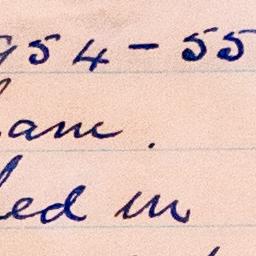 954-55
am.
ed in